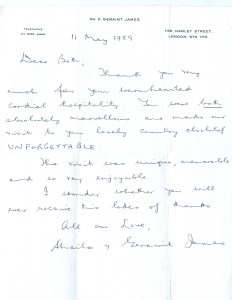 DR D. GERAINT JAMES
TELEPHONE
149, HARLEY STREET,
LONDON, W1N 1HG
11 May 1989
Dear Both,
Thank you very
much for your warmhearted
cordial hospitality. You were both
absolutely marvellous and made our
visit to your lovely country absolutely
UNFORGETTABLE.
The visit was unique, memorable
and so very enjoyable
I wonder whether you will
ever receive this letter of thanks
All our Love,
Sheila & Geraint James